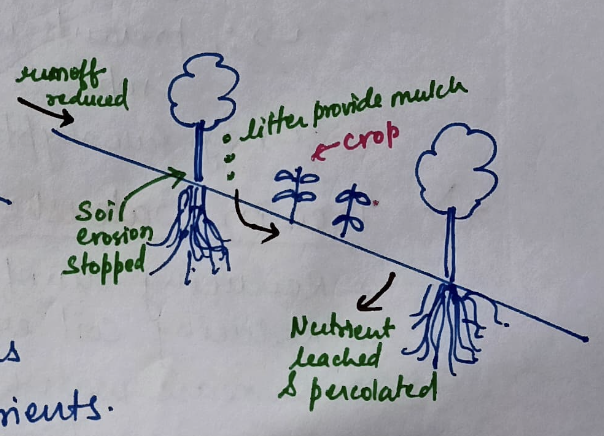 runoff
reduced
litter provide mulch
crop
Soil
erosion
stopped
Nutrient
leached
& percolated
s
rients.